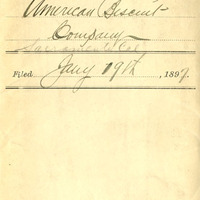 American Biscuit
Company
Sacramento Cal
Filed Jany 19th, 1897.